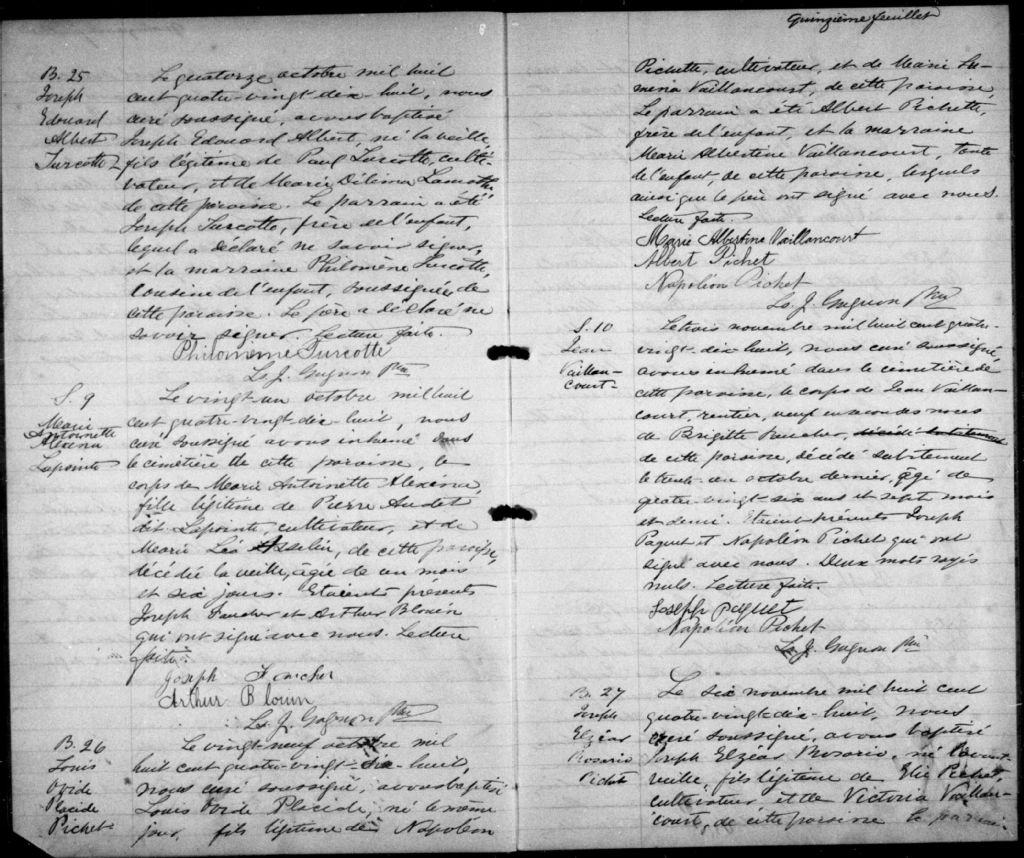 B. 25
Joseph
Edouard
Albert
Turcotte
Le quatorze octobre mil huit
cent quatre-vingt-dix-huit, nous
curé soussigné, avons baptisé
Joseph Edouard Albert, né la veille,
fils légitime de Paul Turcotte, culti-
vateur, et de Marie Délima Lamothe,
de cette paroisse. Le parrain a été
Joseph Turcotte, frère de l'enfant,
lequel a déclaré ne savoir signer,
et la marraine Philomène Turcotte,
cousine de l'enfant, soussignée de
cette paroisse. Le père a déclaré ne
savoir signer. Lecture faite.
Philomène Turcotte
Ls. J. Gagnon Ptre
S. 9
Marie
Antoinette
Alexina
Lapointe
Le vingt-un octobre mil huit
cent quatre-vingt-dix-huit, nous
curé soussigné avons inhumé dans
le cimetière de cette paroisse, le
corps de Marie Antoinette Alexina,
fille légitime de Pierre Audet
dit Lapointe, cultivateur, et de
Marie Léa Asselin, de cette paroisse,
décédée la veille, âgée de un mois
et six jours. Etaient présents
Joseph Faucher et Arthur Blouin
qui ont signé avec nous. Lecture
faite.
Joseph Foucher
Arthur Blouin
Ls. J. Gagnon Ptre
B. 26
Louis
Ovide
Placide
Pichet
Le vingt-neuf octobre mil
huit cent quatre-vingt-dix-huit,
nous curé soussigné, avons baptisé
Louis Ovide Placide, né le même
jour, fils légitime de Napoléon
Quinzième feuillet
Pichette, cultivateur, et de Marie
Vaillancourt, de cette paroisse.
Le parrain a été Albert Pichette,
frère de l'enfant, et la marraine
Marie Albertine Vaillancourt, tante
de l'enfant, de cette paroisse, lesquels
ainsi que le père ont signé avec nous.
Lecture faite.
Marie Albertine Vaillancourt
Albert Pichet
Napoléon Pichet
Ls. J. Gagnon Ptre
S. 10
Jean
Vaillan-
court
Le trois novembre mil huit cent quatre-
vingt-dix-huit, nous curé soussigné,
avons inhumé dans le cimetière de
cette paroisse, le corps de Jean Vaillan-
court, rentier, veuf en secondes noces
de Brigitte Faucher, décédé subitement
de cette paroisse, décédé subitement
le trente-un octobre dernier, âgé de
quatre-vingt-six ans et sept mois
et demi. Etaient présents Joseph
Paquet et Napoléon Pichet qui ont
signé avec nous. Deux mots rayés
nuls. Lecture faite.
Joseph Paquet
Napoléon Pichet
Ls. J. Gagnon Ptre
B. 27
Joseph
Elzéar
Rosario
Pichet
Le six novembre mil huit cent
quatre-vingt-dix-huit, nous
curé soussigné, avons baptisé
Joseph Elzéar Rosario, né l'avant-
veille, fils légitime de Elie Pichet,
cultivateur, et de Victoria Vaillan-
court, de cette paroisse. Le parrain